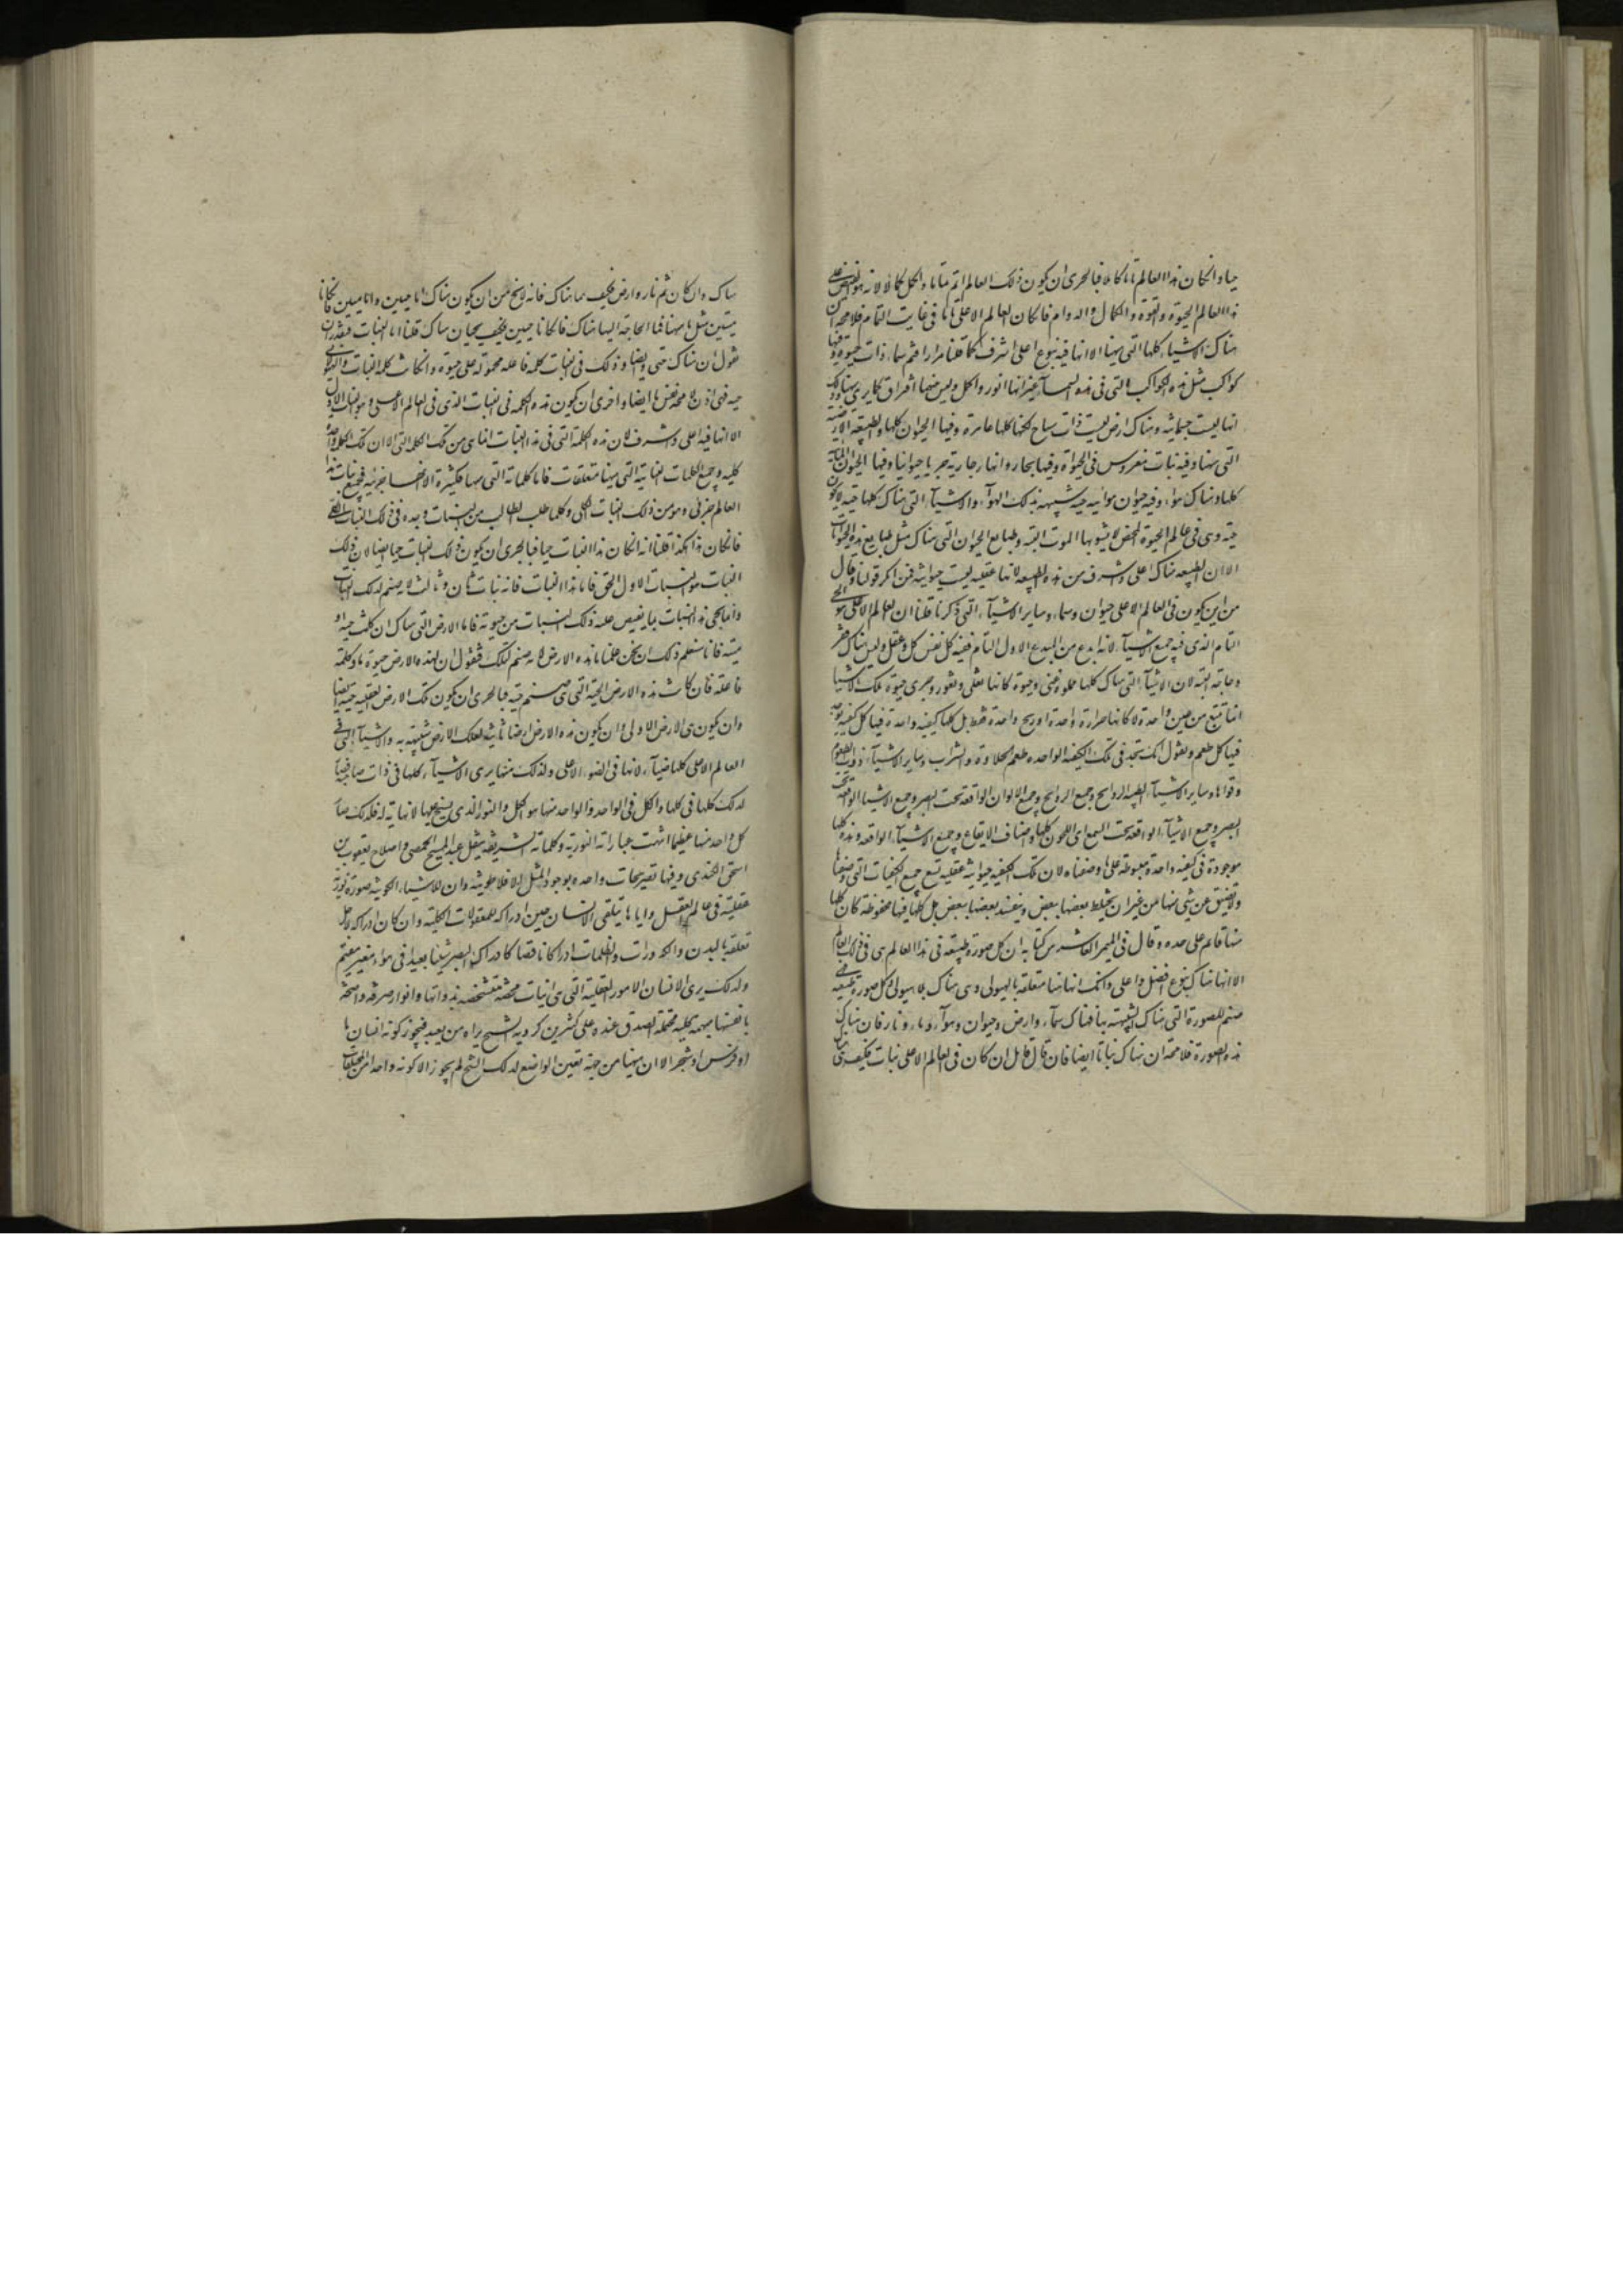 حيا وانكان هذا العالم تاما كاملا فبالحرى ان يكون ذلك العالم اتم تماما واكمل كمالا لانه هو المفيض على
هذا العالم الحيوة والقوة والكمال والدوام فانكان العالم الاعلى تاما فى غاية التمام فلا محة ان
هناك الاشياء كلها التى ههنا الا انها فيه بنوع اعلى اشرف كما قلنا مرارا فثم سماء ذات حيوة وفيها
كواكب مثل هذه الكواكب التى فى هذه السمآء غير انها انور واكمل وليس بينهما افتراق كما يرى ههنا وذلك
انها ليست جسمانية وهناك ارض ليست ذات سباخ لكنها كلها عامرة وفيها الحيوان كلها والطبيعة الارضية
التى ههنا وفيه نبات مغروس فى الحيوة وفيها بحار وانهار جارية جريا حيوانيا وفيها الحيوان المائية
كلها وهناك هواء وفيه حيوان هوائية حية شبيهة بذلك الهوآء والاشيآء التى هناك كلها حية لا تكون
حية وهى فى عالم الحيوة المحض لا يشوبها الموت البتة وطبايع الحيوان التى هناك مثل طبايع هذه الحيوانات
الا ان الطبيعة هناك اعلى واشرف من هذه الطبيعة لانها عقلية ليست حيوانية فمن انكر قولنا وقال
من اين يكون فى العالم الاعلى حيوان وسماء وساير الاشيآء التى ذكرنا قلنا ان العالم الاعلى هو الحى
التام الذى فيه جميع الاشيآء لانه ابدع من المبدع الاول التام ففيه كل نفس وكل عقل وليس هناك فقر
وحاجة البتة لان الاشيآء التى هناك كلها مملوة غنى وحيوة كانها تغلى وتفور وجرى حيوة تلك الاشيا
انما تنبع من عين واحدة لا كانها حرارة واحدة او ريح واحدة فقط بل كلها كيفية واحدة فيها كل كيفية يوجد
فيها كل طعم ونقول انك تجد فى تلك الكيفية الواحدة طعم الحلاوة والشراب وساير الاشيآء ذوات الطعوم
وقواها وساير الاشيآء الطيبة الروايح وجميع الروايح وجميع الالوان الواقعة تحت البصر وجميع الاشيا الواقعة تحت
البصر وجميع الاشيآء الواقعة تحت السمع اى اللحون كلها واصناف الايقاع وجميع الاشيآء الواقعة وهذه كلها
موجودة فى كيفية واحدة مبسوطة على ما وصفناه لان تلك الكيفية حيوانية عقلية تسع جميع الكيفيات التى وصفنا
ولا تضيق عن شى منها من غير ان يختلط بعضها ببعض ويفسد بعضها ببعض بل كلها فيها محفوظة كان كلها
منها قايم على حده وقال فى الميمر العاشر من كتابه ان كل صورة طبيعة فى هذا العالم هى فى ذلك العالم
الا انها هناك بنوع افضل واعلى وذلك انها ههنا متعلقة بالهيولى وهى هناك بلا هيولى وكل صورة طبيعية فهى
صنم للصورة التى هناك الشبيهة بها فهناك سمآء وارض وحيوان وهوآء وماء ونار فان هناك
هذه الصورة فلا محة ان هناك نباتا ايضا فان قال قايل ان كان فى العالم الاعلى نبات فكيف هى هناك
هناك وان كان ثم نار وارض فكيف هما هناك فانه لا يخ من ان يكون هناك اما حيين واما ميتين فانكانا
ميتين مثل ما ههنا فما الحاجة اليها هناك فانكانا حيين فكيف يحيان هناك قلنا اما النبات فنقدر ان
نقول ان هناك حى ايضا وذلك فى النبات كلمة فاعلة محمولة على حيوة وانكانت كلمة النبات والهيولانى
حية فهى اذن لا محة نفس ما ايضا واحرى ان يكون هذه الكلمة فى النبات الذى فى العالم الاعلى وهو النبات الاول
الا انها فيه اعلى واشرف لان هذه الكلمة التى فى هذا النبات انما هى من تلك الكلمة التى الا ان تلك الكلمة واحدة
كلية وجميع الكلمات النباتية التى ههنا متعلقات فاما كلمات التى ههنا فكثيرة الا انها جزئية فجميع نبات هذا
العالم جزئى وهو من ذلك النبات الكلى وكلما طلب الطالب من النبات وجده فى ذلك النبات الكلى
فانكان هذا هكذا قلنا انه انكان هذا النبات حيا فبالحرى ان يكون ذلك النبات حيا ايضا لان ذلك
النبات هو النبات الاول الحق فاما هذا النبات فانه نبات ثان وثالث لانه صنم لذلك النبات
وانما يحيى هذا النبات بما يفيض عليه ذلك النبات من حيوته فاما الارض التى هناك ان كانت حية او
ميتة فانا سنعلم ذلك ان نحن علمنا ما هذه الارض لانه صنم لتلك فنقول ان لهذه الارض حيوة ما وكلمة
فاعلة فان كانت هذه الارض الحية التى هى صنم حية فبالحرى ان يكون تلك الارض العقلية حية ايضا
وان يكون هى الارض الاولى وان يكون هذه الارض ارضا ثانية لتلك الارض شبيهة به والاشيآء التى فى
العالم الاعلى كلها ضيآء لانها فى الضوء الاعلى ولذلك منها يرى الاشيآء كلها فى ذات صاحبه
لذلك كلها فى كلها والكل فى الواحد والواحد منها هو الكل والنور الذى يسنح عليها لا نهاية له فلذلك صار
كل واحد منها عظيما انتهت عباراته النورية وكلماته الشريفة بنقل عبد المسيح الحمصى واصلاح يعقوب بن
اسحق الكندى وفيها تصريحات واحده بوجود المثل الافلاطونية وان للاشياء الكونية صورة نورية
عقلية فى عالم العقل واياها يتلقى الانسان حين ادراكه للمعقولات الكلية وان كان ادراكه لاجل
تعلقه بالبدن والكدورات والظلمات ادراكا ناقصا كادراك البصر شيئا بعيدا فى هواء مغبر مغيم
ولذلك يرى الانسان الامور العقلية التى هى انيات محضة متشخصة بذواتها وانوار صرفة واضحة
بانفسها مبهمة كلية محتملة الصدق عنده على كثيرين كرويه شبح يراه من بعيد فيجوز كونه انسانا
او فرس او شجر الا ان ههنا من جهة تعين الواضع لذلك الشبح لم يجوز الا كونه واحدا من المختلفات